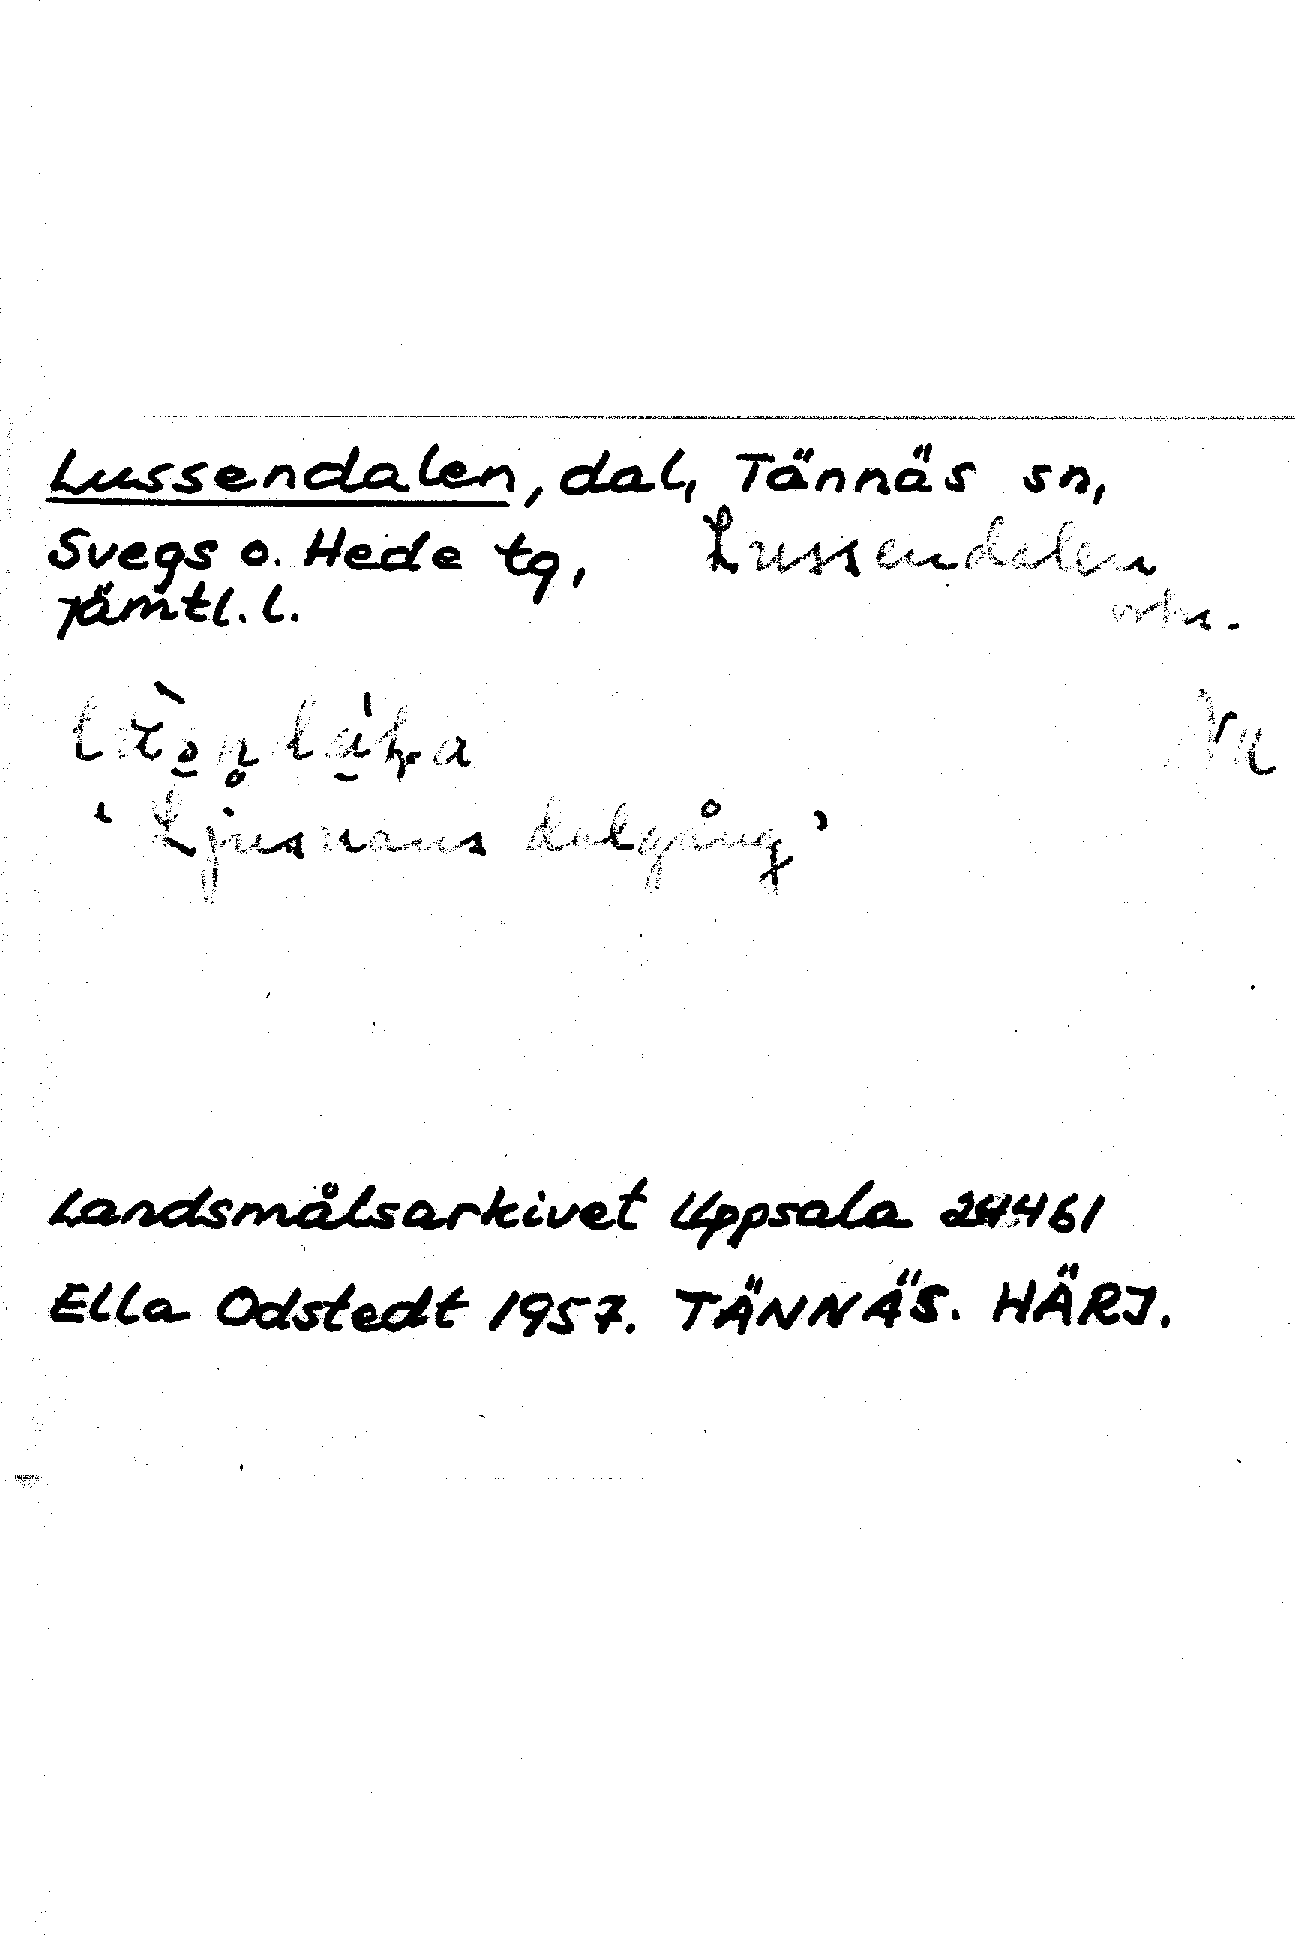 Lussendalen, dal, Tännäs sn,
Svegs o. Hede tg, Lussendalen
Jämtl. l. ortn.
'Ljusnans dalgång'
Landsmålsarkivet Uppsala 24461
Ella Odstedt 1957. TÄNNÄS. HÄRJ.